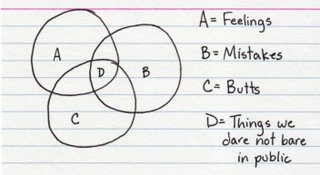 A
B
D
C
A = Feelings
B = Mistakes
C = Butts
D = Things we
dare not bare
in public